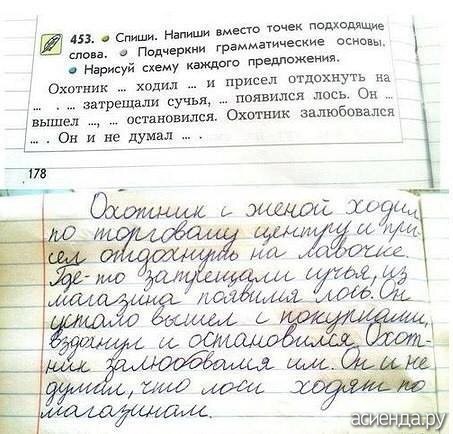 453. • Спиши. Напиши вместо точек подходящие
слова. • Подчеркни грамматические основы.
• Нарисуй схему каждого предложения.
Охотник ... ходил ... и присел отдохнуть на
... . ... затрещали сучья, ... появился лось. Он ...
вышел ..., ... остановился. Охотник залюбовался
... . Он и не думал ... .
178
Охотник с женой ходил
по торговому центру и при
сел отдохнуть на лавочке.
Где-то затрещали сучья, из
магазина появился лось. Он
устало вышел с покупками,
вздохнул и остановился. Охот-
ник залюбовался им. Он и не
думал, что лоси ходят по
магазинам.
асиенда.ру